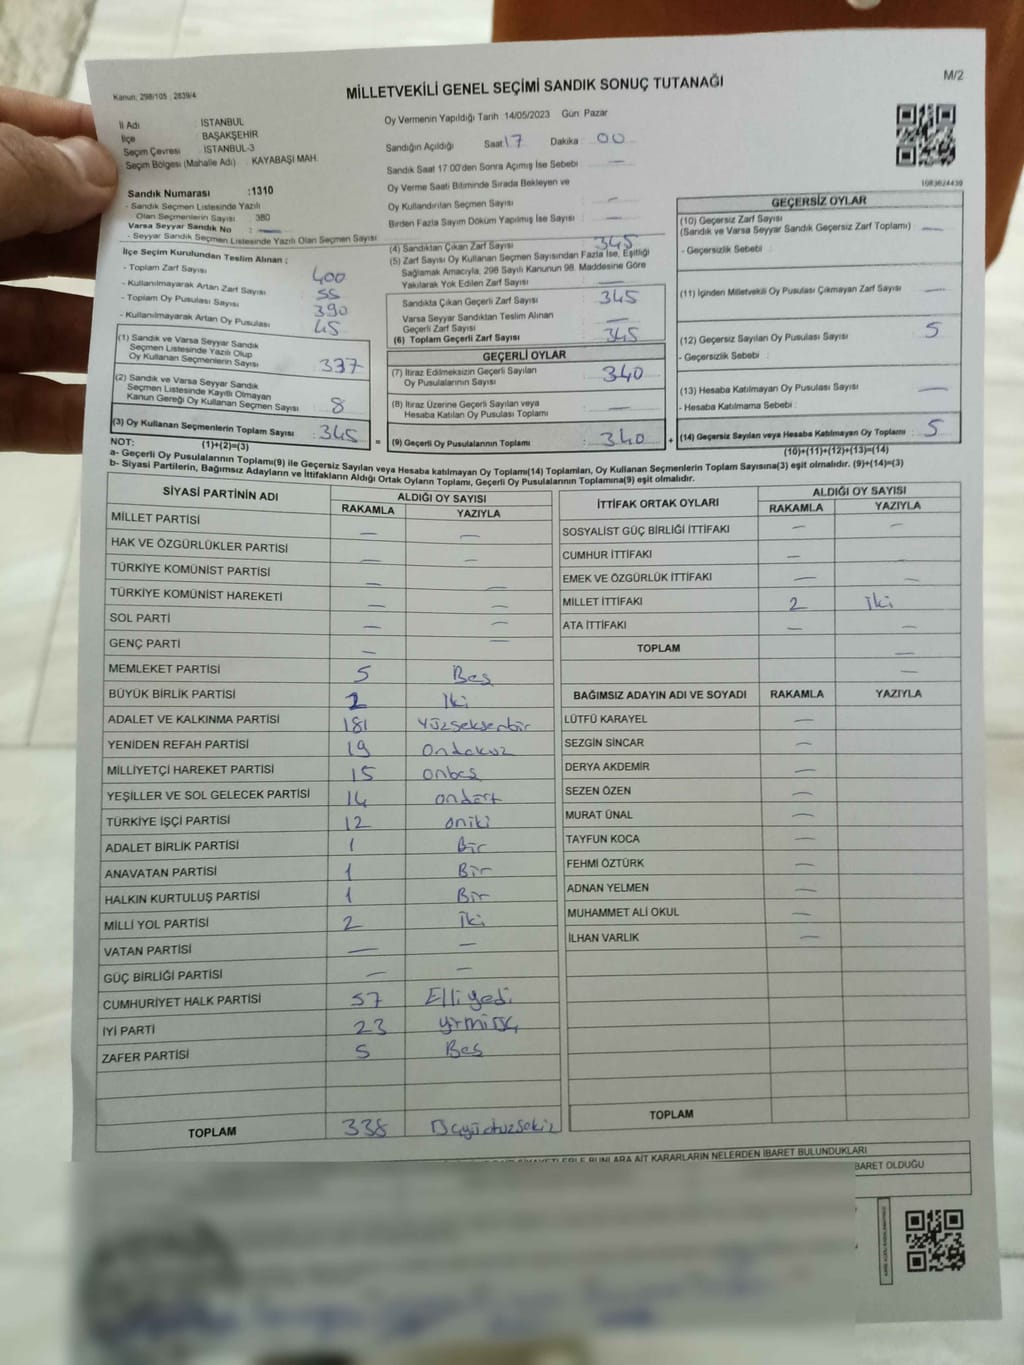 Kanun; 298/105 , 2839/4
MİLLETVEKİLİ GENEL SEÇİMİ SANDIK SONUÇ TUTANAĞI
M/2
İl Adı : İSTANBUL
İlçe : BAŞAKŞEHİR
Seçim Çevresi : İSTANBUL-3
Seçim Bölgesi (Mahalle Adı) : KAYABAŞI MAH.
Sandık Numarası :1310
- Sandık Seçmen Listesinde Yazılı
Olan Seçmenlerin Sayısı : 380
Varsa Seyyar Sandık No : —
- Seyyar Sandık Seçmen Listesinde Yazılı Olan Seçmen Sayısı:
İlçe Seçim Kurulundan Teslim Alınan ;
- Toplam Zarf Sayısı 400
- Kullanılmayarak Artan Zarf Sayısı : 55
- Toplam Oy Pusulası Sayısı 390
- Kullanılmayarak Artan Oy Pusulası 45
(1) Sandık ve Varsa Seyyar Sandık
Seçmen Listesinde Yazılı Olup
Oy Kullanan Seçmenlerin Sayısı : 337
(2) Sandık ve Varsa Seyyar Sandık
Seçmen Listesinde Kayıtlı Olmayan
Kanun Gereği Oy Kullanan Seçmen Sayısı : 8
(3) Oy Kullanan Seçmenlerin Toplam Sayısı : 345
(1)+(2)=(3)
Oy Vermenin Yapıldığı Tarih 14/05/2023 Gün: Pazar
Sandığın Açıldığı Saat 17 Dakika : 00
Sandık Saat 17:00'den Sonra Açımış İse Sebebi : —
Oy Verme Saati Bitiminde Sırada Bekleyen ve
Oy Kullandırılan Seçmen Sayısı : —
Birden Fazla Sayım Döküm Yapılmış İse Sayısı : —
(4) Sandıktan Çıkan Zarf Sayısı : 345
(5) Zarf Sayısı Oy Kullanan Seçmen Sayısından Fazla İse, Eşitliği
Sağlamak Amacıyla, 298 Sayılı Kanunun 98. Maddesine Göre
Yakılarak Yok Edilen Zarf Sayısı : —
Sandıkta Çıkan Geçerli Zarf Sayısı : 345
Varsa Seyyar Sandıktan Teslim Alınan
Geçerli Zarf Sayısı : —
(6) Toplam Geçerli Zarf Sayısı : 345
GEÇERLİ OYLAR
(7) İtiraz Edilmeksizin Geçerli Sayılan
Oy Pusulalarının Sayısı : 340
(8) İtiraz Üzerine Geçerli Sayılan veya
Hesaba Katılan Oy Pusulası Toplamı : —
= (9) Geçerli Oy Pusulalarının Toplamı : 340
1083624430
GEÇERSİZ OYLAR
(10) Geçersiz Zarf Sayısı
(Sandık ve Varsa Seyyar Sandık Geçersiz Zarf Toplamı) : —
- Geçersizlik Sebebi :
(11) İçinden Milletvekili Oy Pusulası Çıkmayan Zarf Sayısı : —
(12) Geçersiz Sayılan Oy Pusulası Sayısı : 5
- Geçersizlik Sebebi :
(13) Hesaba Katılmayan Oy Pusulası Sayısı : —
- Hesaba Katılmama Sebebi :
+ (14) Geçersiz Sayılan veya Hesaba Katılmayan Oy Toplamı : 5
(10)+(11)+(12)+(13)=(14)
NOT:
a- Geçerli Oy Pusulalarının Toplamı(9) ile Geçersiz Sayılan veya Hesaba katılmayan Oy Toplamı(14) Toplamları, Oy Kullanan Seçmenlerin Toplam Sayısına(3) eşit olmalıdır. (9)+(14)=(3)
b- Siyasi Partilerin, Bağımsız Adayların ve İttifakların Aldığı Ortak Oyların Toplamı, Geçerli Oy Pusulalarının Toplamına(9) eşit olmalıdır.
SİYASİ PARTİNİN ADI ALDIĞI OY SAYISI
RAKAMLA YAZIYLA
MİLLET PARTİSİ — —
HAK VE ÖZGÜRLÜKLER PARTİSİ — —
TÜRKİYE KOMÜNİST PARTİSİ — —
TÜRKİYE KOMÜNİST HAREKETİ — —
SOL PARTİ — —
GENÇ PARTİ — —
MEMLEKET PARTİSİ 5 Beş
BÜYÜK BİRLİK PARTİSİ 2 İki
ADALET VE KALKINMA PARTİSİ 181 Yüzseksenbir
YENİDEN REFAH PARTİSİ 19 Ondokuz
MİLLİYETÇİ HAREKET PARTİSİ 15 onbeş
YEŞİLLER VE SOL GELECEK PARTİSİ 14 ondört
TÜRKİYE İŞÇİ PARTİSİ 12 oniki
ADALET BİRLİK PARTİSİ 1 Bir
ANAVATAN PARTİSİ 1 Bir
HALKIN KURTULUŞ PARTİSİ 1 Bir
MİLLİ YOL PARTİSİ 2 İki
VATAN PARTİSİ — —
GÜÇ BİRLİĞİ PARTİSİ — —
CUMHURİYET HALK PARTİSİ 57 Elliyedi
İYİ PARTİ 23 yirmiüç
ZAFER PARTİSİ 5 Beş
TOPLAM 338 Üçyüzotuzsekiz
İTTİFAK ORTAK OYLARI ALDIĞI OY SAYISI
RAKAMLA YAZIYLA
SOSYALİST GÜÇ BİRLİĞİ İTTİFAKI — —
CUMHUR İTTİFAKI —
EMEK VE ÖZGÜRLÜK İTTİFAKI — —
MİLLET İTTİFAKI 2 İki
ATA İTTİFAKI — —
TOPLAM —
—
BAĞIMSIZ ADAYIN ADI VE SOYADI RAKAMLA YAZIYLA
LÜTFÜ KARAYEL —
SEZGİN SİNCAR —
DERYA AKDEMİR —
SEZEN ÖZEN —
MURAT ÜNAL —
TAYFUN KOCA —
FEHMİ ÖZTÜRK —
ADNAN YELMEN —
MUHAMMET ALİ OKUL —
İLHAN VARLIK —
TOPLAM
BUNLARA AİT KARARLARIN NELERDEN İBARET BULUNDUKLARI
BARET OLDUĞU